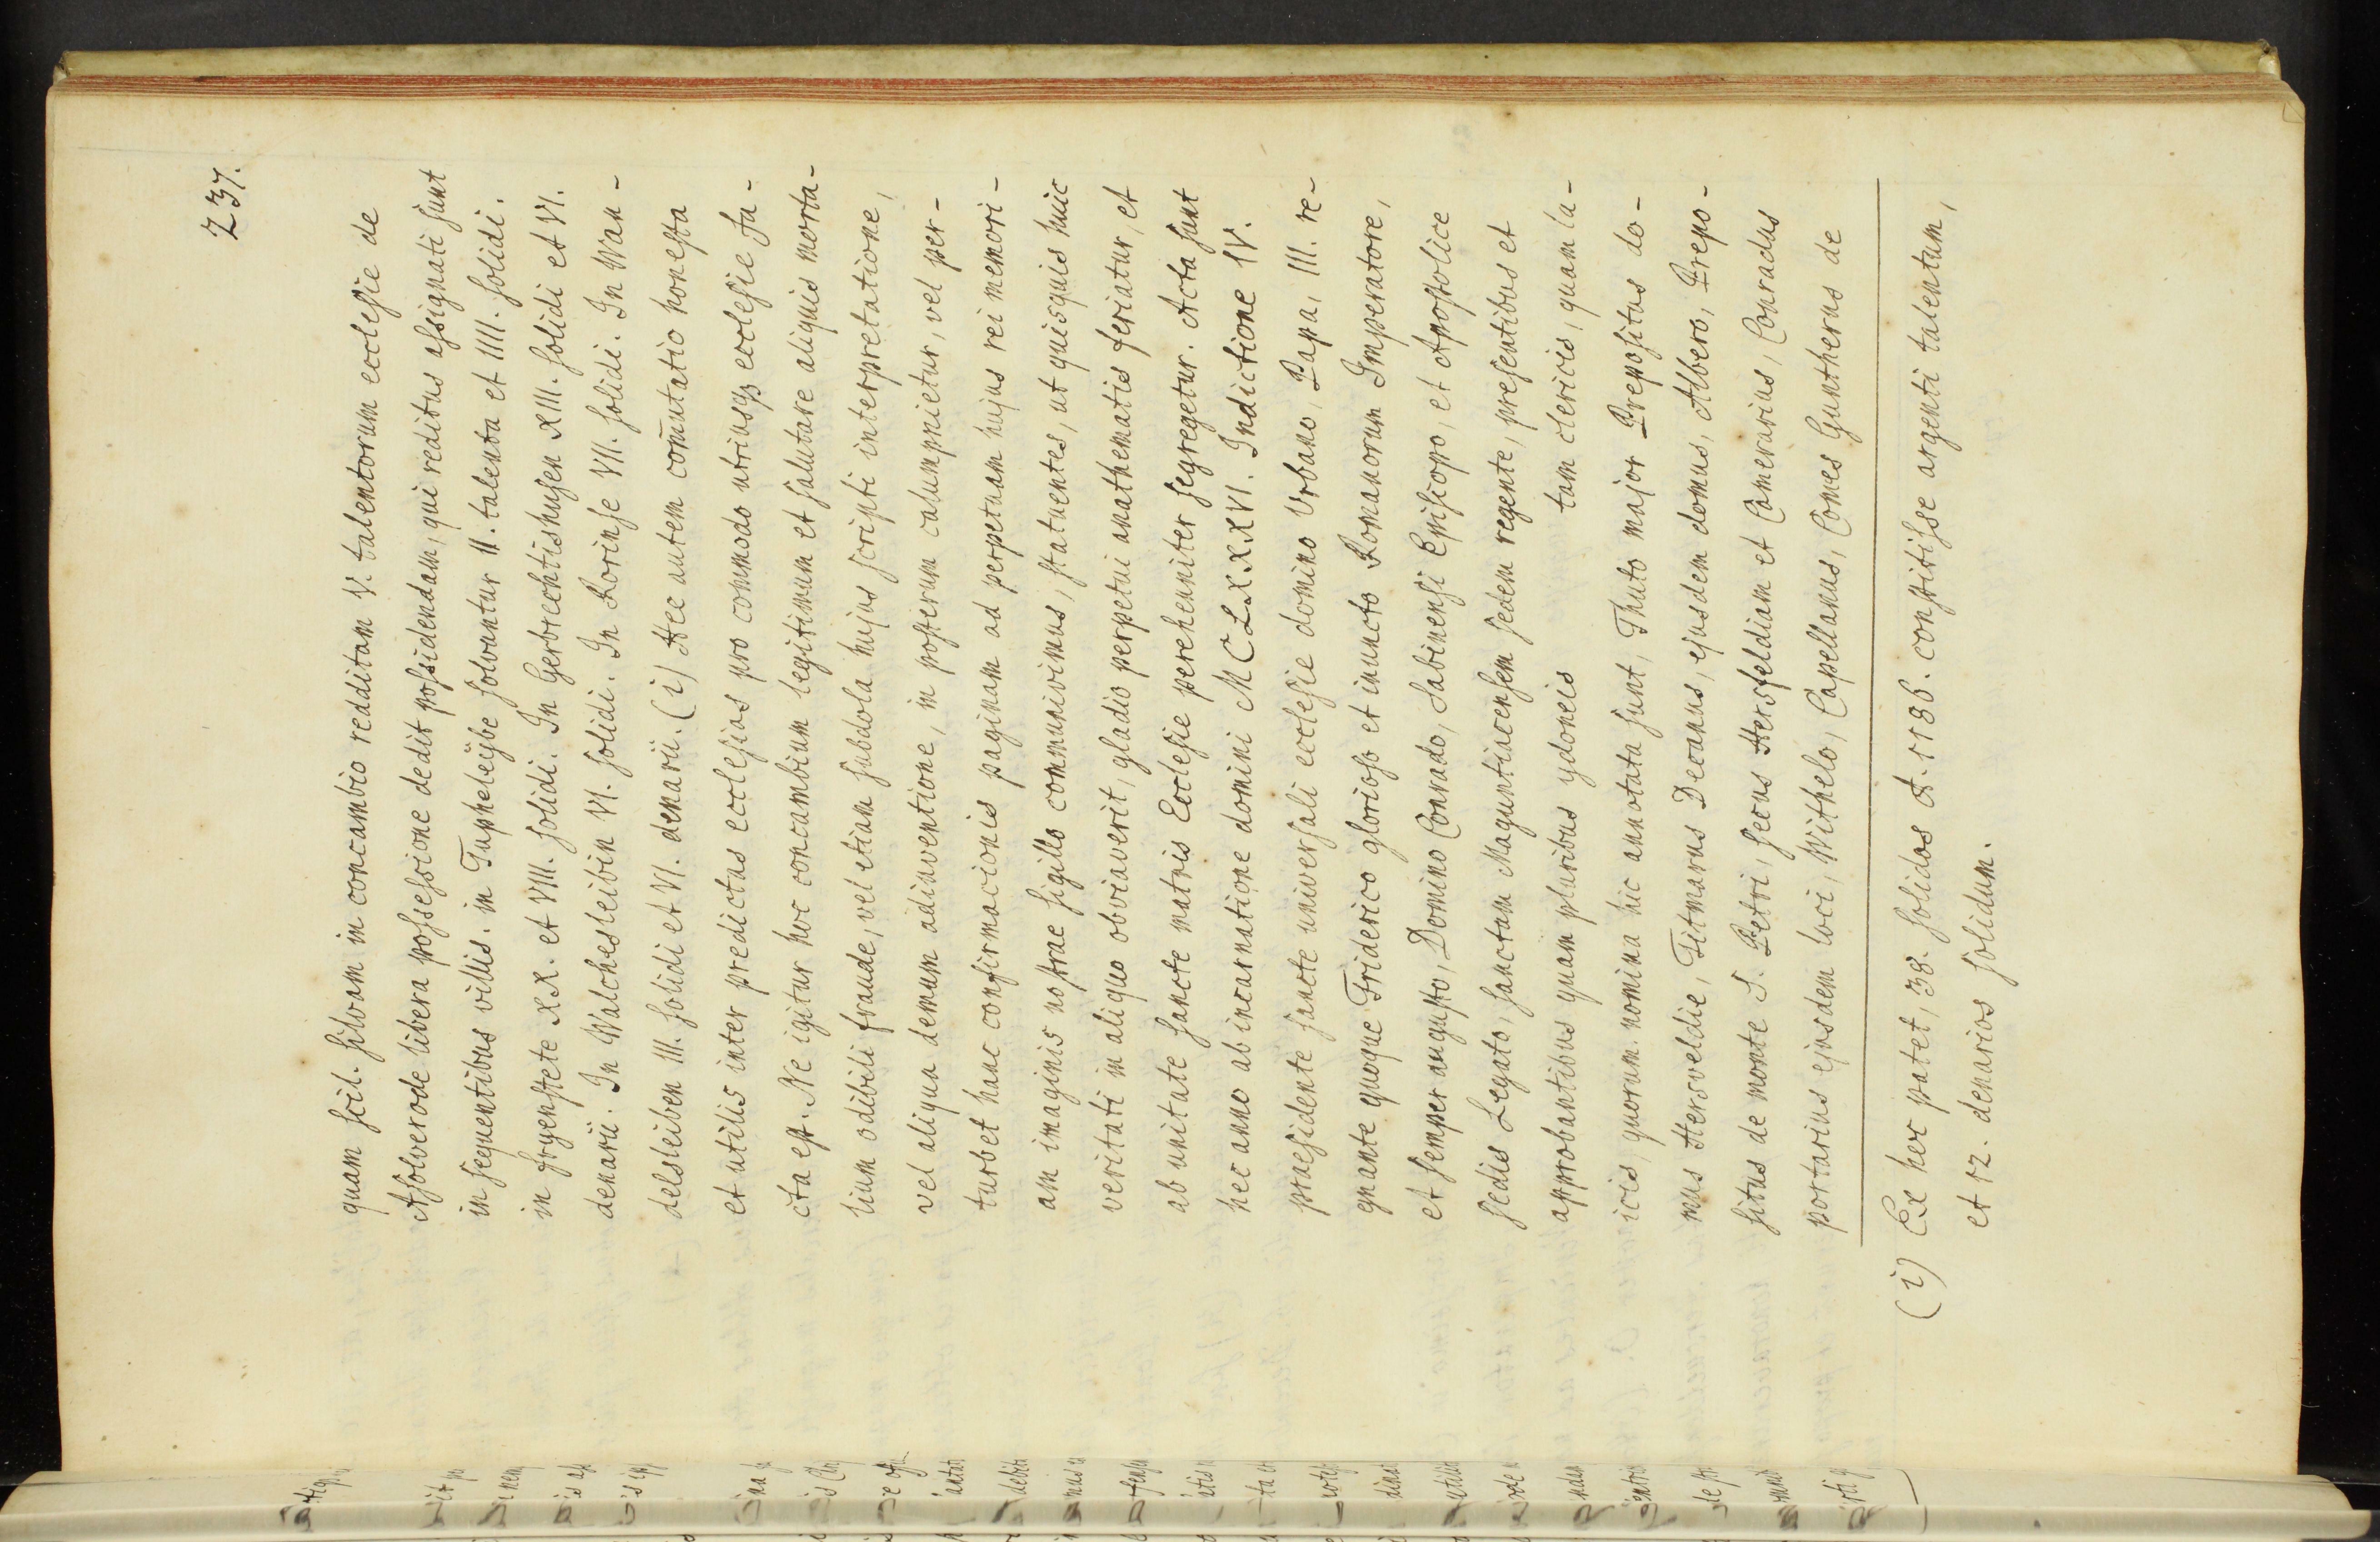 237.
quam scil. silvam in concambio redditam V. talentorum ecclesie de
Asolverode libera possessione dedit possidendam, qui reditus assignati sunt
in sequentibus villis. in Tupheleybe solvantur II. talenta et IIII. solidi.
in sryenstete XX. et VIII. solidi. In Gerbrechtishusen XIII. solidi et VI.
denarii. In Walchesleibin VI. solidi. In Rorinse VII. solidi. In Wan-
delsleiben III. solidi et VI. denarii. (i) Hec autem com̄utatio honesta
et utilis inter predictas ecclesias pro commodo utriusqз ecclesie fa-
cta est. Ne igitur hoc concambium legitimum et salutare aliquis morta-
lium odibili fraude, vel etiam subdola hujus scripti interpretatione,
vel aliqua demum adinventione, in posterum calumpnietur, vel per-
turbet hanc confirmacionis paginam ad perpetuam hujus rei memori-
am imaginis nostrae sigillo communivimus, statuentes, ut quisquis huic
veritati in aliquo obviaverit, gladio perpetui anathematis feriatur, et
ab unitate sancte matris Ecclesie perehenniter segregetur. Acta sunt
hec anno ab incarnatione domini MCLXXXVI. Indictione IV.
praesidente sancte universali ecclesie domino Urbano, Papa, III. re-
gnante quoque Friderico glorioso et inuncto Romanorum Imperatore,
et semper augusto, Domino Conrado, Sabinensi Episiopo, et Apostolice
sedis Legato, sanctam Maguntiacensem sedem regente, presentibus et
approbantibus quam pluribus ydoneis tam clericis, quam la-
icis, quorum nomina hic annotata sunt, Thuto major Prepositus do-
mus Hersveldie, Titmarus Decanus, ejusdem domus, Albero, Prepo-
situs de monte S. Petri, secus Hersfeldiam et Camerarius, Conradus
portarius ejusdem loci, Withelo, Capellanus, Comes Guntherus de
(i) Ex hec patet, 38. solidos A. 1186. constitisse argenti talentum,
et 12. denarios solidum.